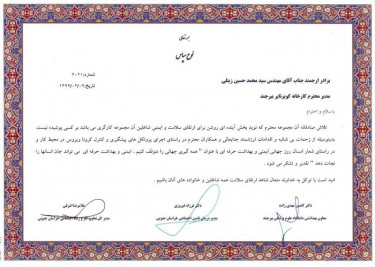 بسمه تعالی
لوح سپاس
شماره: ۲۰۲۱
تاریخ: ۱۳۹۹/۰۲/۰۹
برادر ارجمند جناب آقای مهندس سید محمد حسین زینلی
مدیر محترم کارخانه کویرتایر بیرجند
با سلام و احترام
تلاش صادقانه آن مجموعه محترم که نوید بخش آینده ای روشن برای ارتقای سلامت و ایمنی شاغلین آن مجموعه کارگری می باشد بر کسی پوشیده نیست.
بدینوسیله از زحمات بی شائبه و اقدامات ارزشمند جنابعالی و همکاران محترم در راستای اجرای پروتکل های پیشگیری و کنترل کرونا ویروس در محیط کار و
در راستای شعار امسال روز جهانی ایمنی و بهداشت حرفه ای با عنوان " همه گیری جهانی را متوقف کنیم، ایمنی و بهداشت حرفه ای می تواند جان انسانها را
نجات دهد " تقدیر و تشکر می شود.
امید است با توکل به خداوند متعال شاهد ارتقای سلامت همه شاغلین و خانواده های آنان باشیم.
دکتر مهدی زاده
معاون بهداشتی دانشگاه علوم پزشکی بیرجند
دکتر فرزاد فیروزی
مدیر درمان تامین اجتماعی خراسان جنوبی
غلامرضا اشرفی
مدیر کل تعاون، کار و رفاه اجتماعی خراسان جنوبی